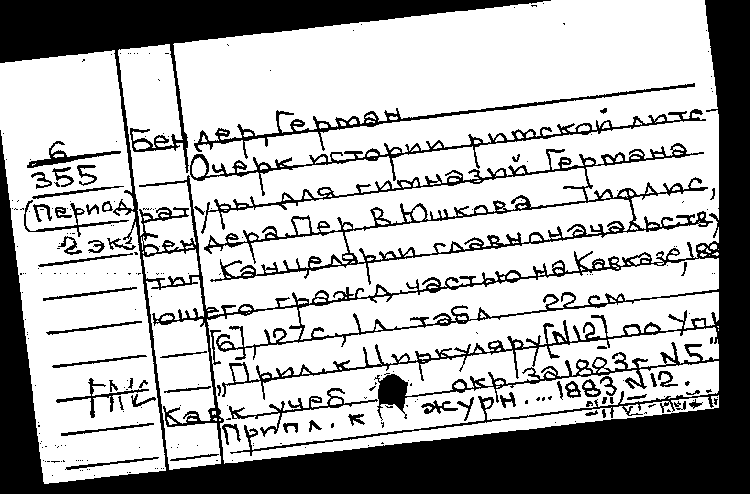 6
355
(Период)
2 экз.
Бендер, Герман
Очерк истории римской лите-
ратуры для гимназий Германа
Бендера. Пер. В. Юшкова. Тифлис,
тип. Канцелярии главноначальству-
ющего гражд. частью на Кавказе, 188
[6], 127 с., 1 л. табл. 22 см.
"Прил. к Циркуляру [N12] по Упр
Кавк. учеб. окр. за 1883 г. N5."
Припл. к журн. ... 1883, N12.